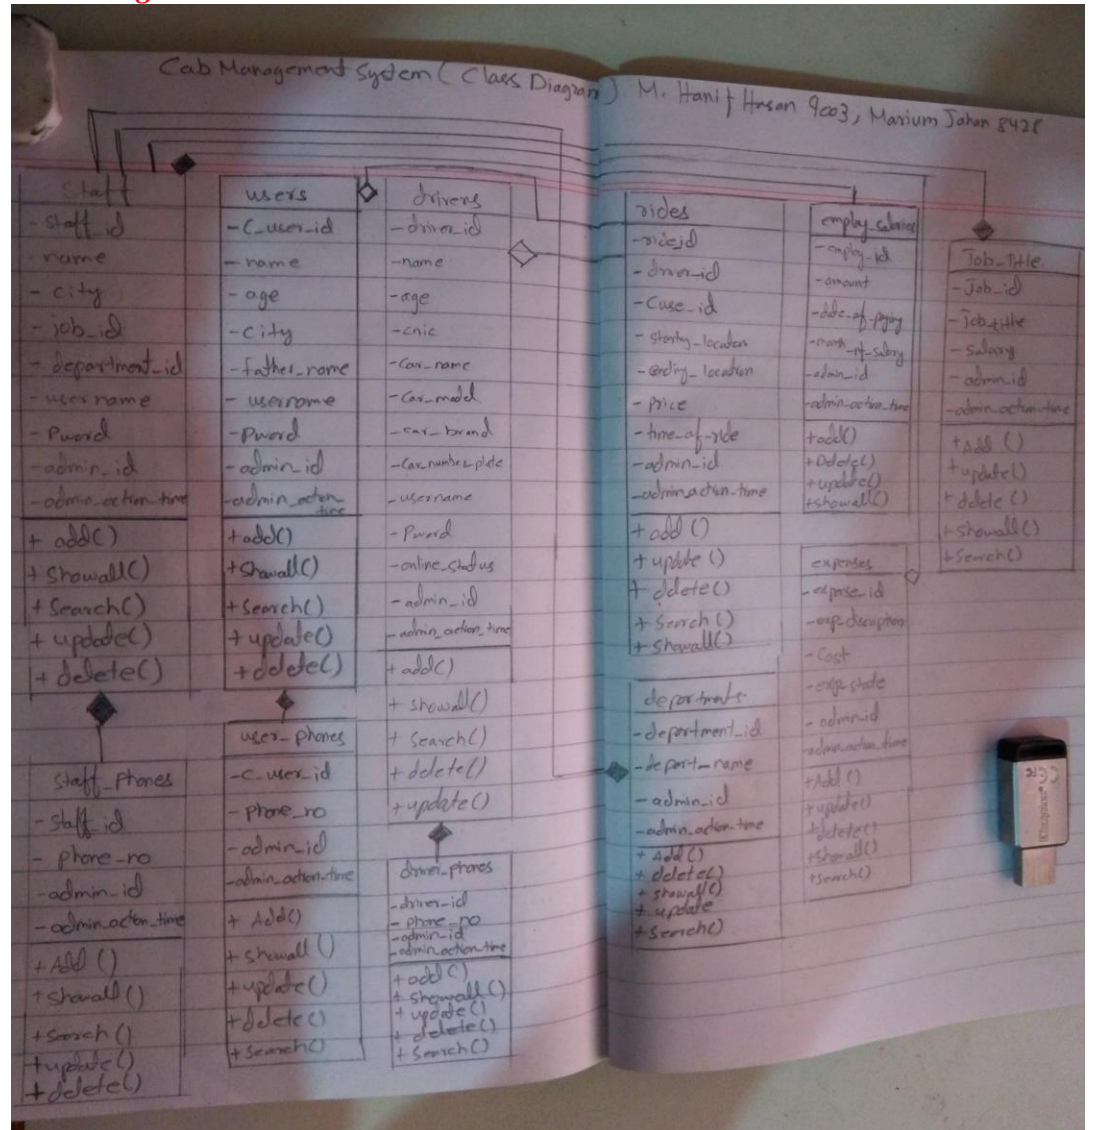 Cab Management System ( Class Diagram ) M. Hanif Hasan 9003, Marium Jahan 8428
Staff
- staff_id
name
- city
- job_id
- department_id
- username
- Pword
- admin_id
- admin_action_time
+ add()
+ Showall()
+ Search()
+ update()
+ delete()
staff_Phones
- staff_id
- phone_no
- admin_id
- admin_action_time
+ Add ()
+ showall()
+ Search ()
+ update()
+ delete()
users
- C_user_id
- name
- age
- City
- father_name
- username
- Pword
- admin_id
- admin_action_
time
+ add()
+ Showall()
+ Search()
+ update()
+ delete()
user_phones
- C_user_id
- phone_no
- admin_id
- admin_action_time
+ Add()
+ showall ()
+ update()
+ delete()
+ Search()
drivers
- driver_id
- name
- age
- cnic
- Car_name
- Car_model
- car_brand
- Car_number_plate
- username
- Pword
- online_status
- admin_id
- admin_action_time
+ add()
+ showall()
+ Search()
+ delete()
+ update()
driver_phones
- driver_id
- phone_no
- admin_id
- admin_action_time
+ add()
+ showall()
+ update()
+ delete()
+ Search()
rides
- ride_id
- driver_id
- Cuse_id
- starting_location
- ending_location
- Price
- time_of_ride
- admin_id
- admin_action_time
+ add ()
+ update ()
+ delete()
+ Search ()
+ Showall()
departments
- department_id
- depart_name
- admin_id
- admin_action_time
+ Add()
+ delete()
+ showall()
+ update
+ Search()
employ_salaries
- employ_id
- amount
- date_of_paying
- month
_of_salary
- admin_id
- admin_action_time
+ add()
+ Delete()
+ update()
+ showall()
expenses
- expense_id
- exp_discription
- Cost
- admin_id
- admin_action_time
+ Add()
+ update()
+ delete()
+ Showall()
+ Search()
Job_Title
- Job_id
- job_title
- Salary
- admin_id
- admin_action_time
+ Add ()
+ update()
+ delete ()
+ Showall()
+ Search()
Kingston